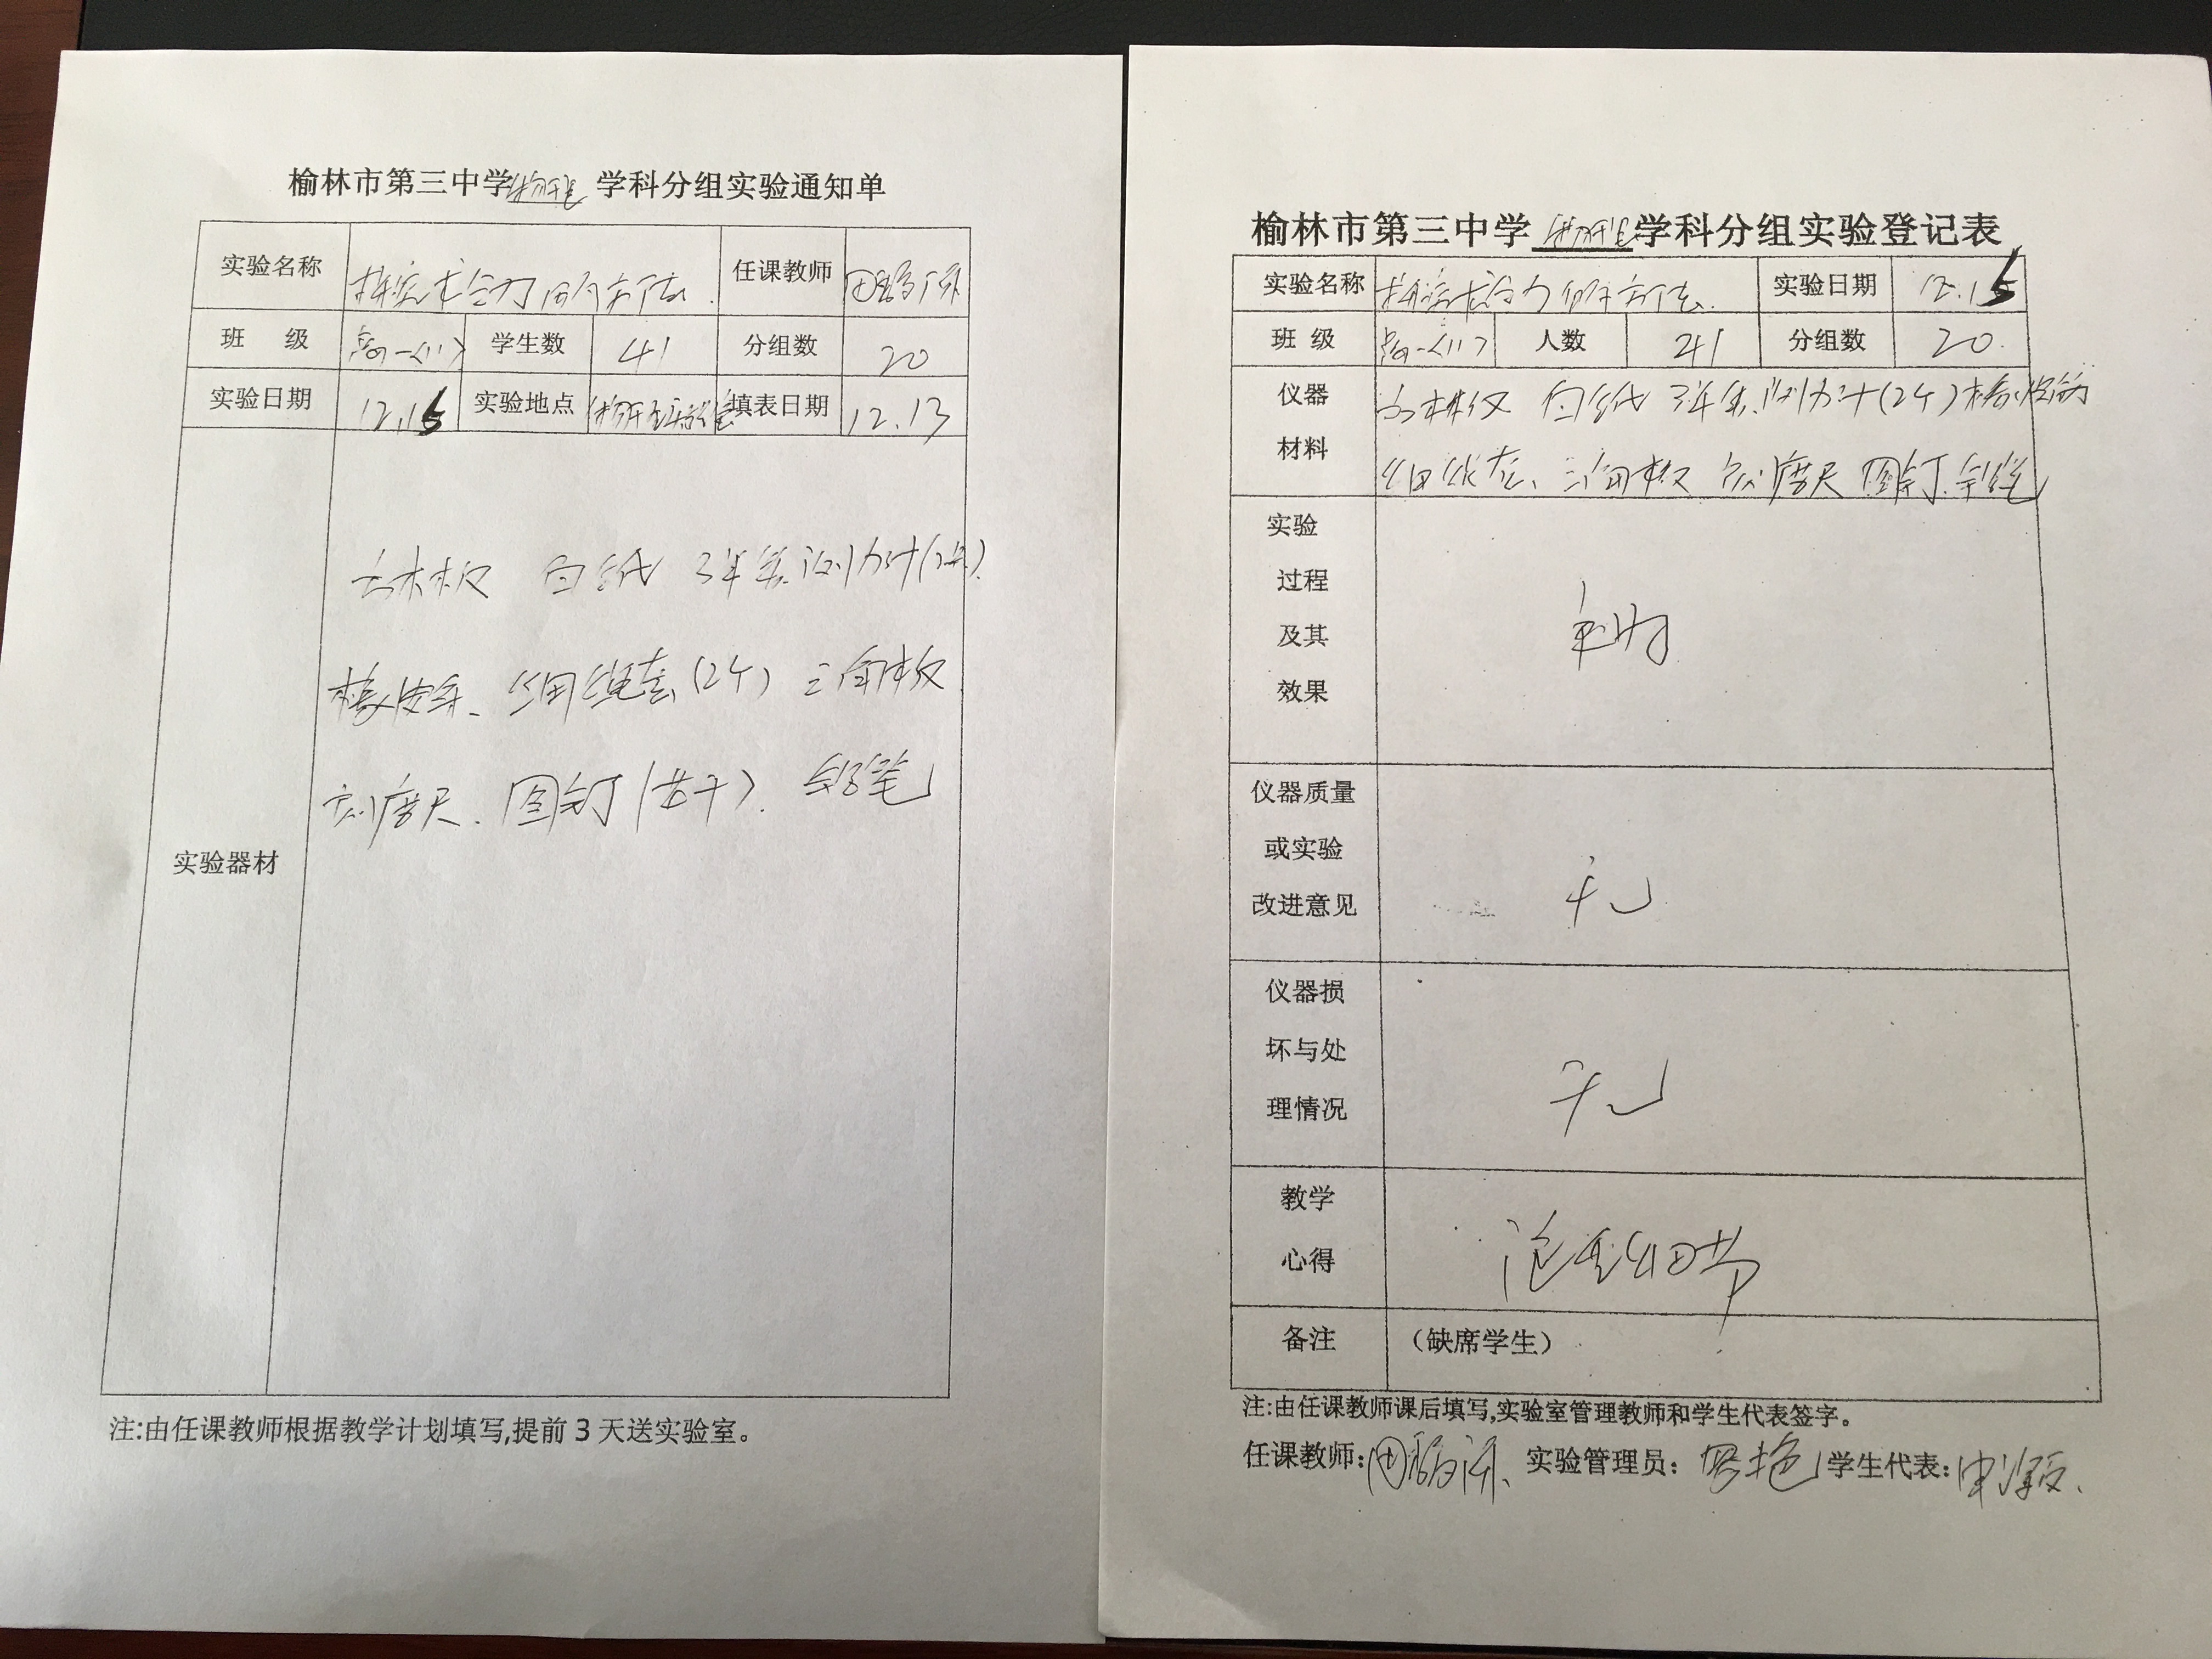 榆林市第三中学物理学科分组实验通知单
实验名称 探究求合力的方法 任课教师
班 级 高一(11) 学生数 41 分组数 20
实验日期 12.15 实验地点 物理实验室 填表日期 12.13
方木板 白纸 弹簧测力计(2个)
橡皮条、细绳套(2个) 三角板
刻度尺、图钉(若干)、铅笔
实验器材
注:由任课教师根据教学计划填写,提前3天送实验室。
榆林市第三中学物理学科分组实验登记表
实验名称 探究求合力的方法 实验日期 12.15
班 级 高一(11) 人数 41 分组数 20
仪器 方木板 白纸 弹簧测力计(2个) 橡皮筋
材料 细绳套、三角板 刻度尺 图钉、铅笔
实验
过程
及其
效果
良好
仪器质量
或实验
改进意见
无
仪器损
坏与处
理情况
无
教学
心得
注重细节
备注 (缺席学生)
注:由任课教师课后填写,实验室管理教师和学生代表签字。
任课教师: 实验管理员: 学生代表: